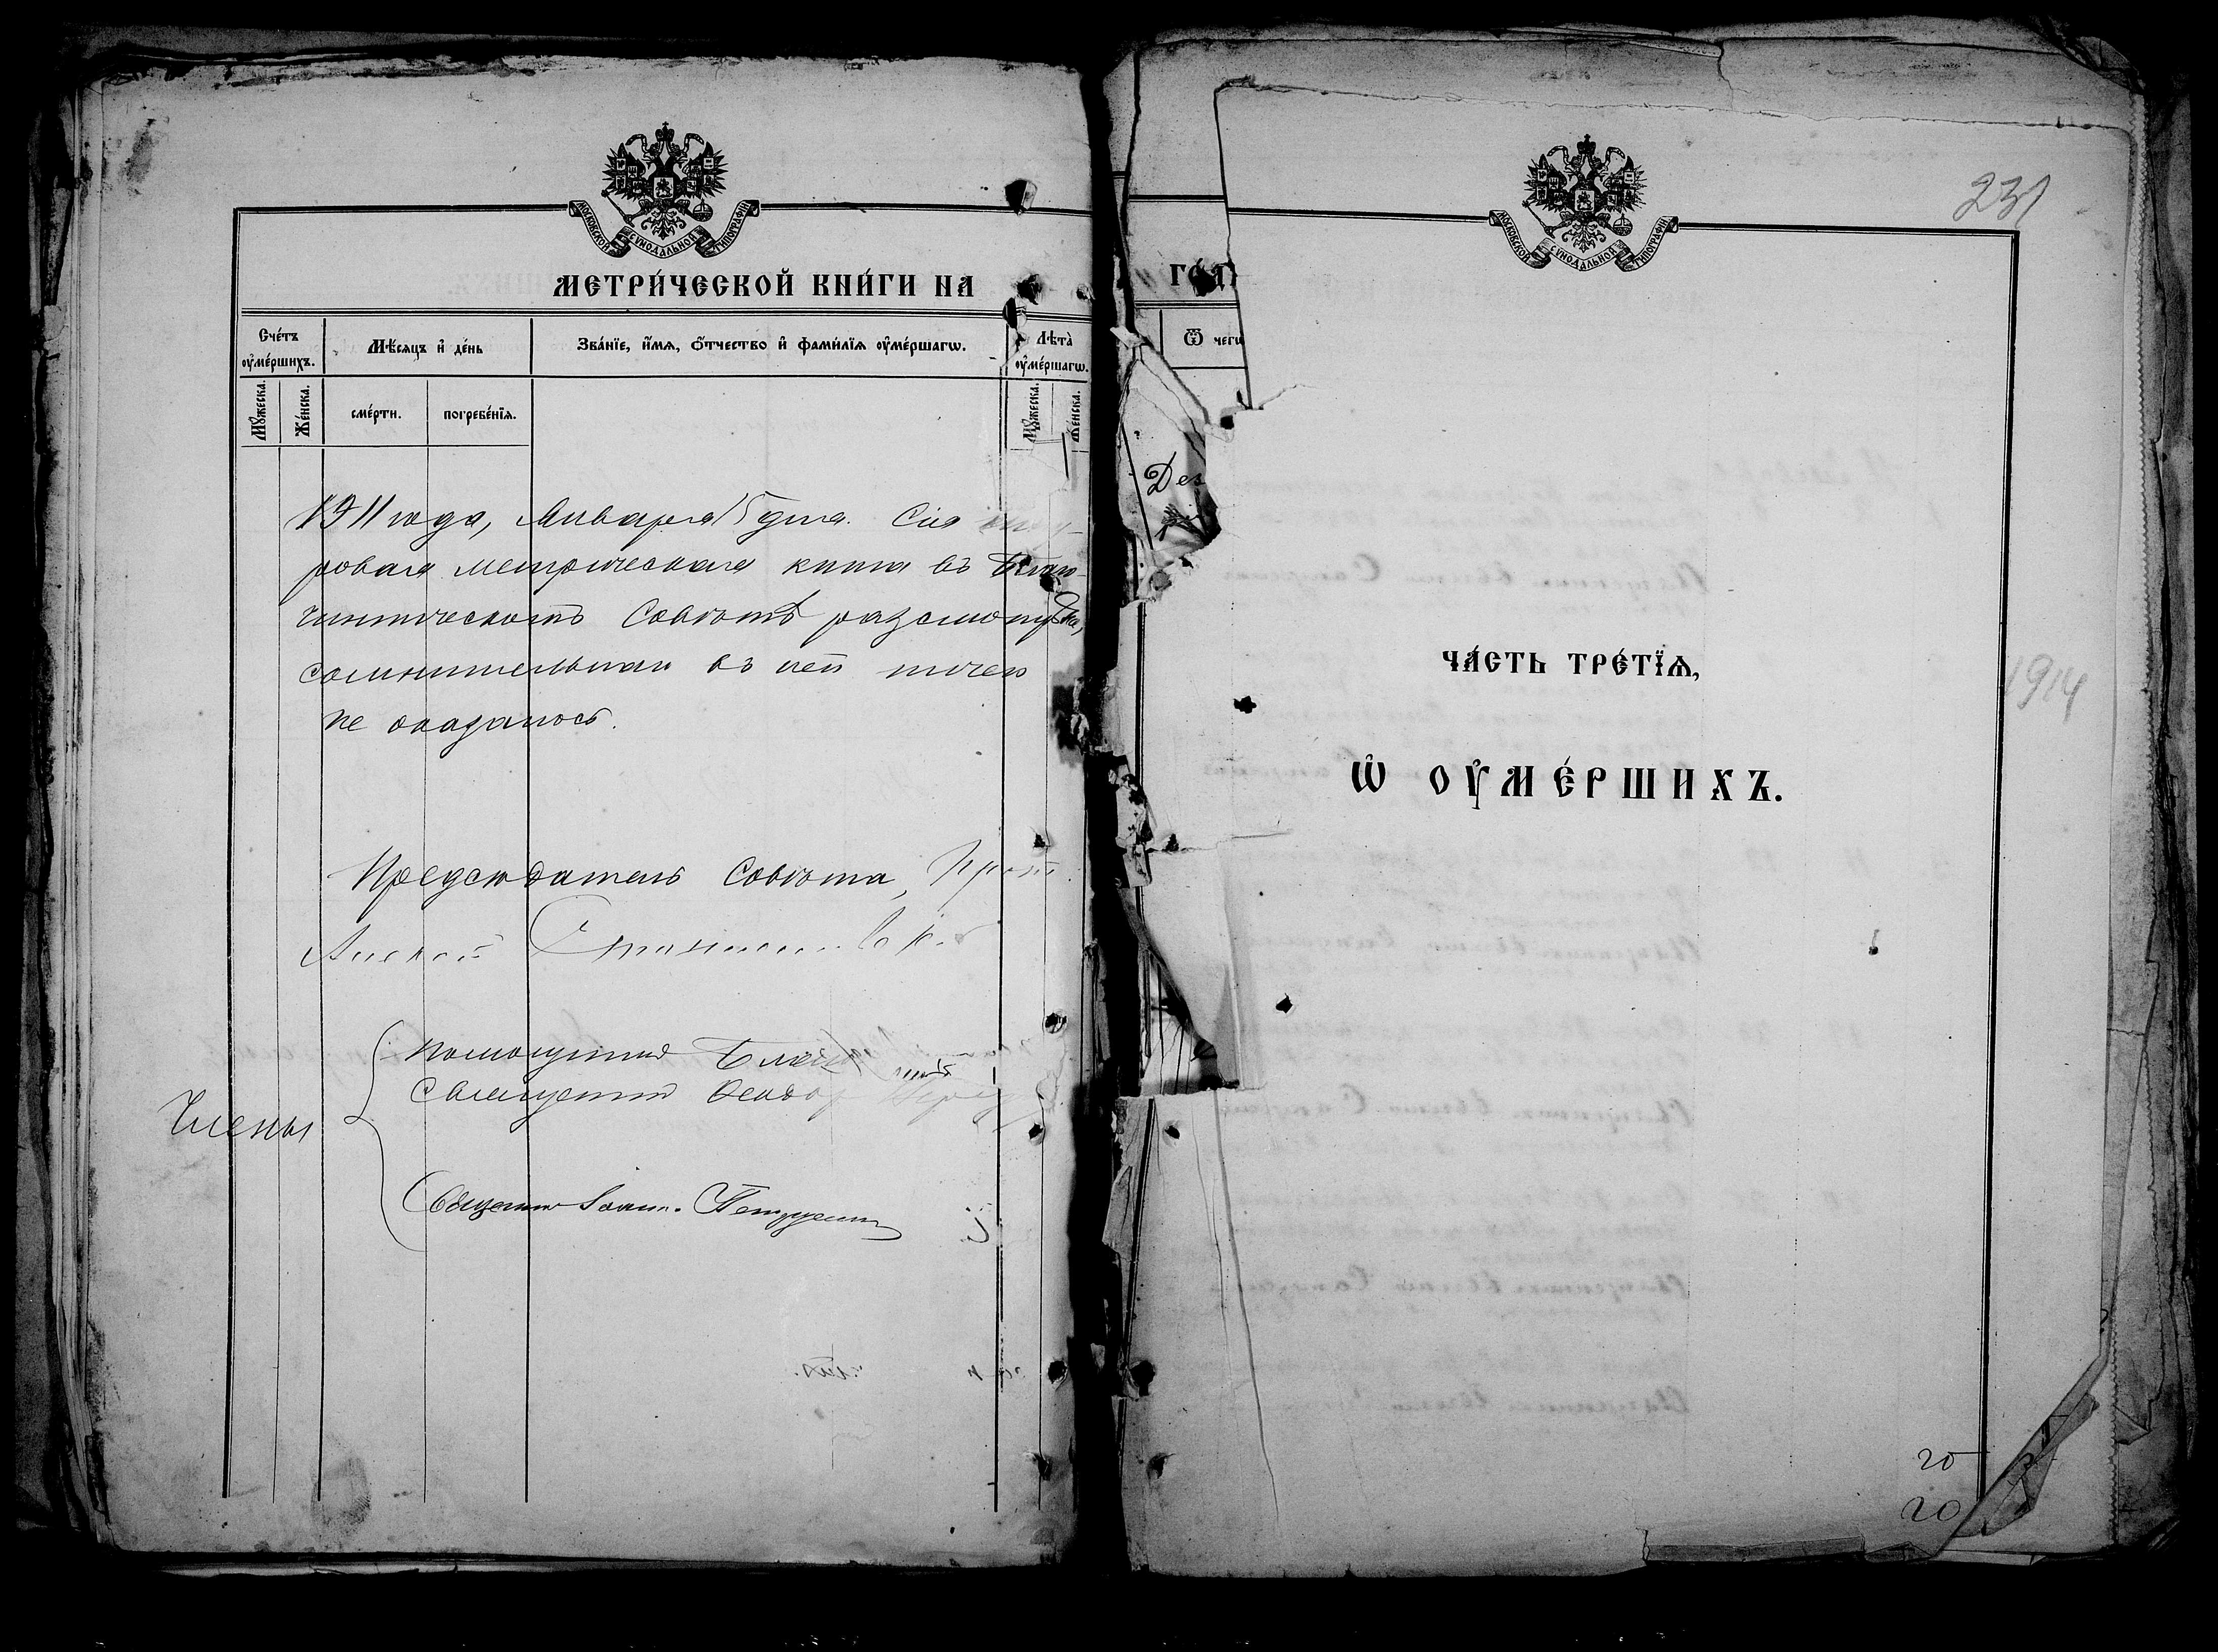 МОСКОВСКОЙ СѴНОДАЛЬНОЙ ТИПОГРАФІИ
МЕТРИ́ЧЕСКОЙ КНИ́ГИ НА
Сче́тъ ᲂу҆ме́ршихъ.
Мѣ́сяцъ и҆ де́нь
Зва́нїе, и҆́мѧ, ѻ҆́тчество и҆ фами́лїѧ ᲂу҆ме́ршагѡ.
Лѣта̀ ᲂу҆ме́ршагѡ.
Мꙋ́жеска.
Же́нска.
сме́рти.
погребе́нїѧ.
Мꙋ́жеска.
Же́нска.
1911 года, Января 15 дня. Сія
ровая метрическая книга въ Благо-
чинническомъ Совѣтѣ разсмотрѣна,
сомнительныхъ въ ней
не оказалось.
Предсѣдатель Совѣта, Прот.
Алексѣй
Члены
Помощникъ Благоч
Священникъ Ѳеодоръ
Священникъ Іоаннъ
ГО́Д
Ѿ чегѡ
231
МОСКОВСКОЙ СѴНОДАЛЬНОЙ ТИПОГРАФІИ
ЧА́СТЬ ТРЕ́ТЇѦ,
1914
Ѡ҆ ОУ҆МЕ́РШИХЪ.
20
20